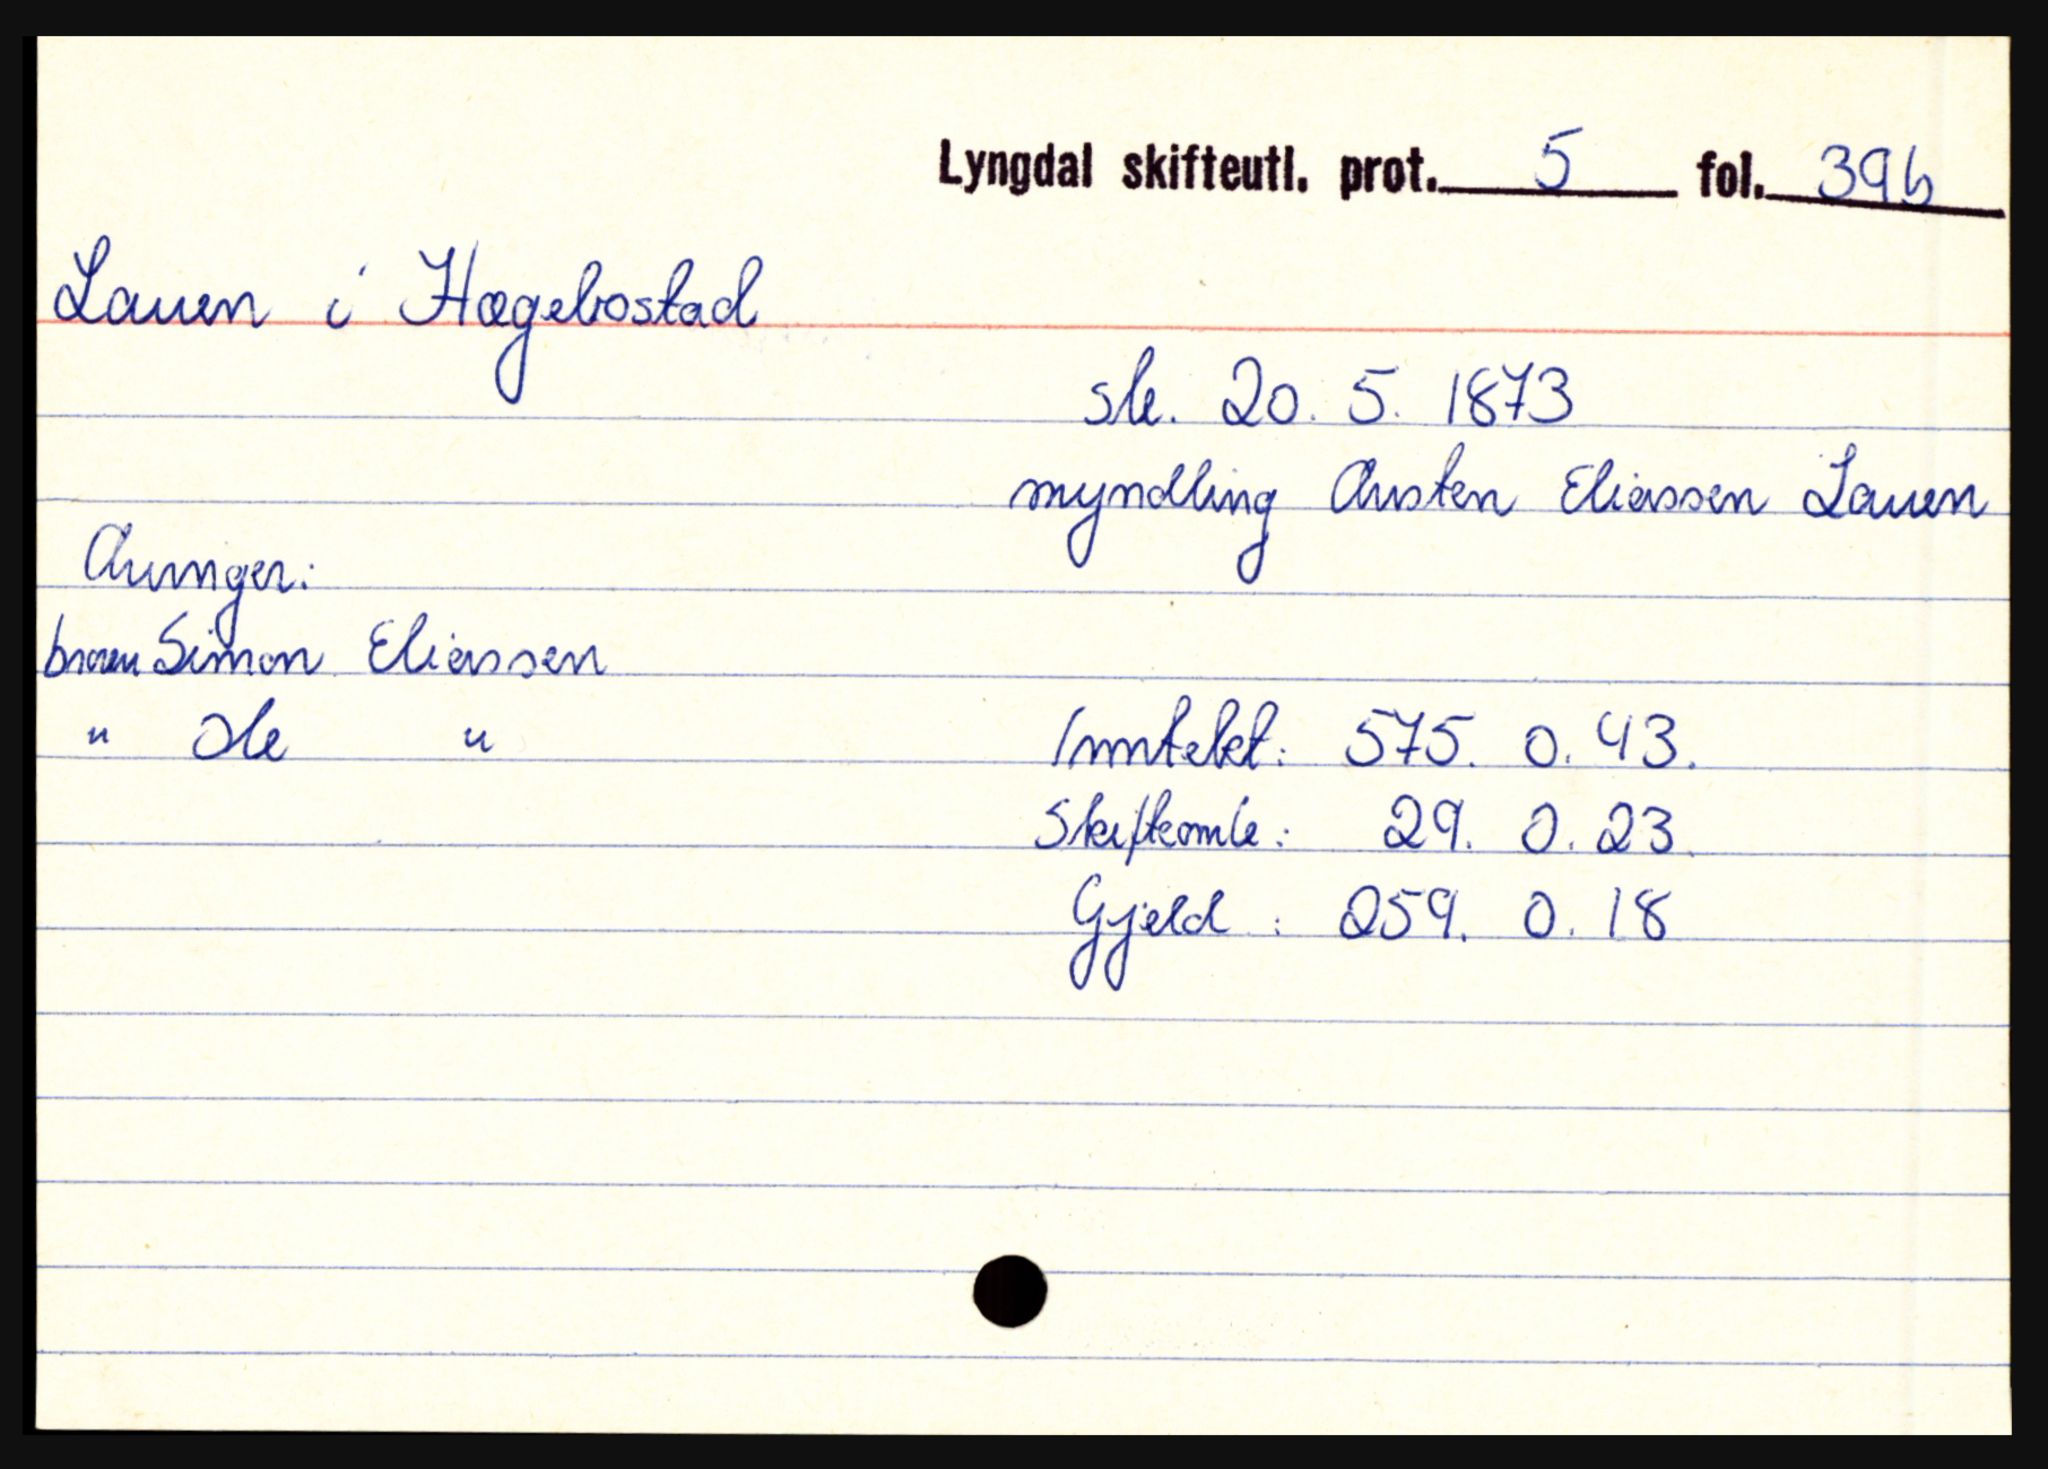 Lyngdal skifteutl. prot. 5 fol. 39b
Lauen i Hægebostad
sk. 20. 5. 1873
myndling Austen Eliassen Lauen
Arvinger:
broren Simon Eliassen
" Ole "
Inntekt: 575. 0. 43.
Skiftomk: 29. 0. 23.
Gjeld : 259. 0. 18